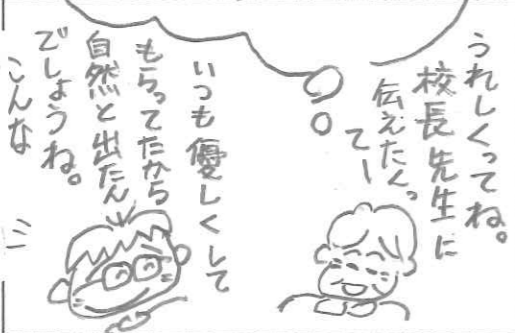 うれしくってね。
校長先生に
伝えたくっ
てー
いつも優しくして
もらってたから
自然と出たん
でしょうね。
こんな